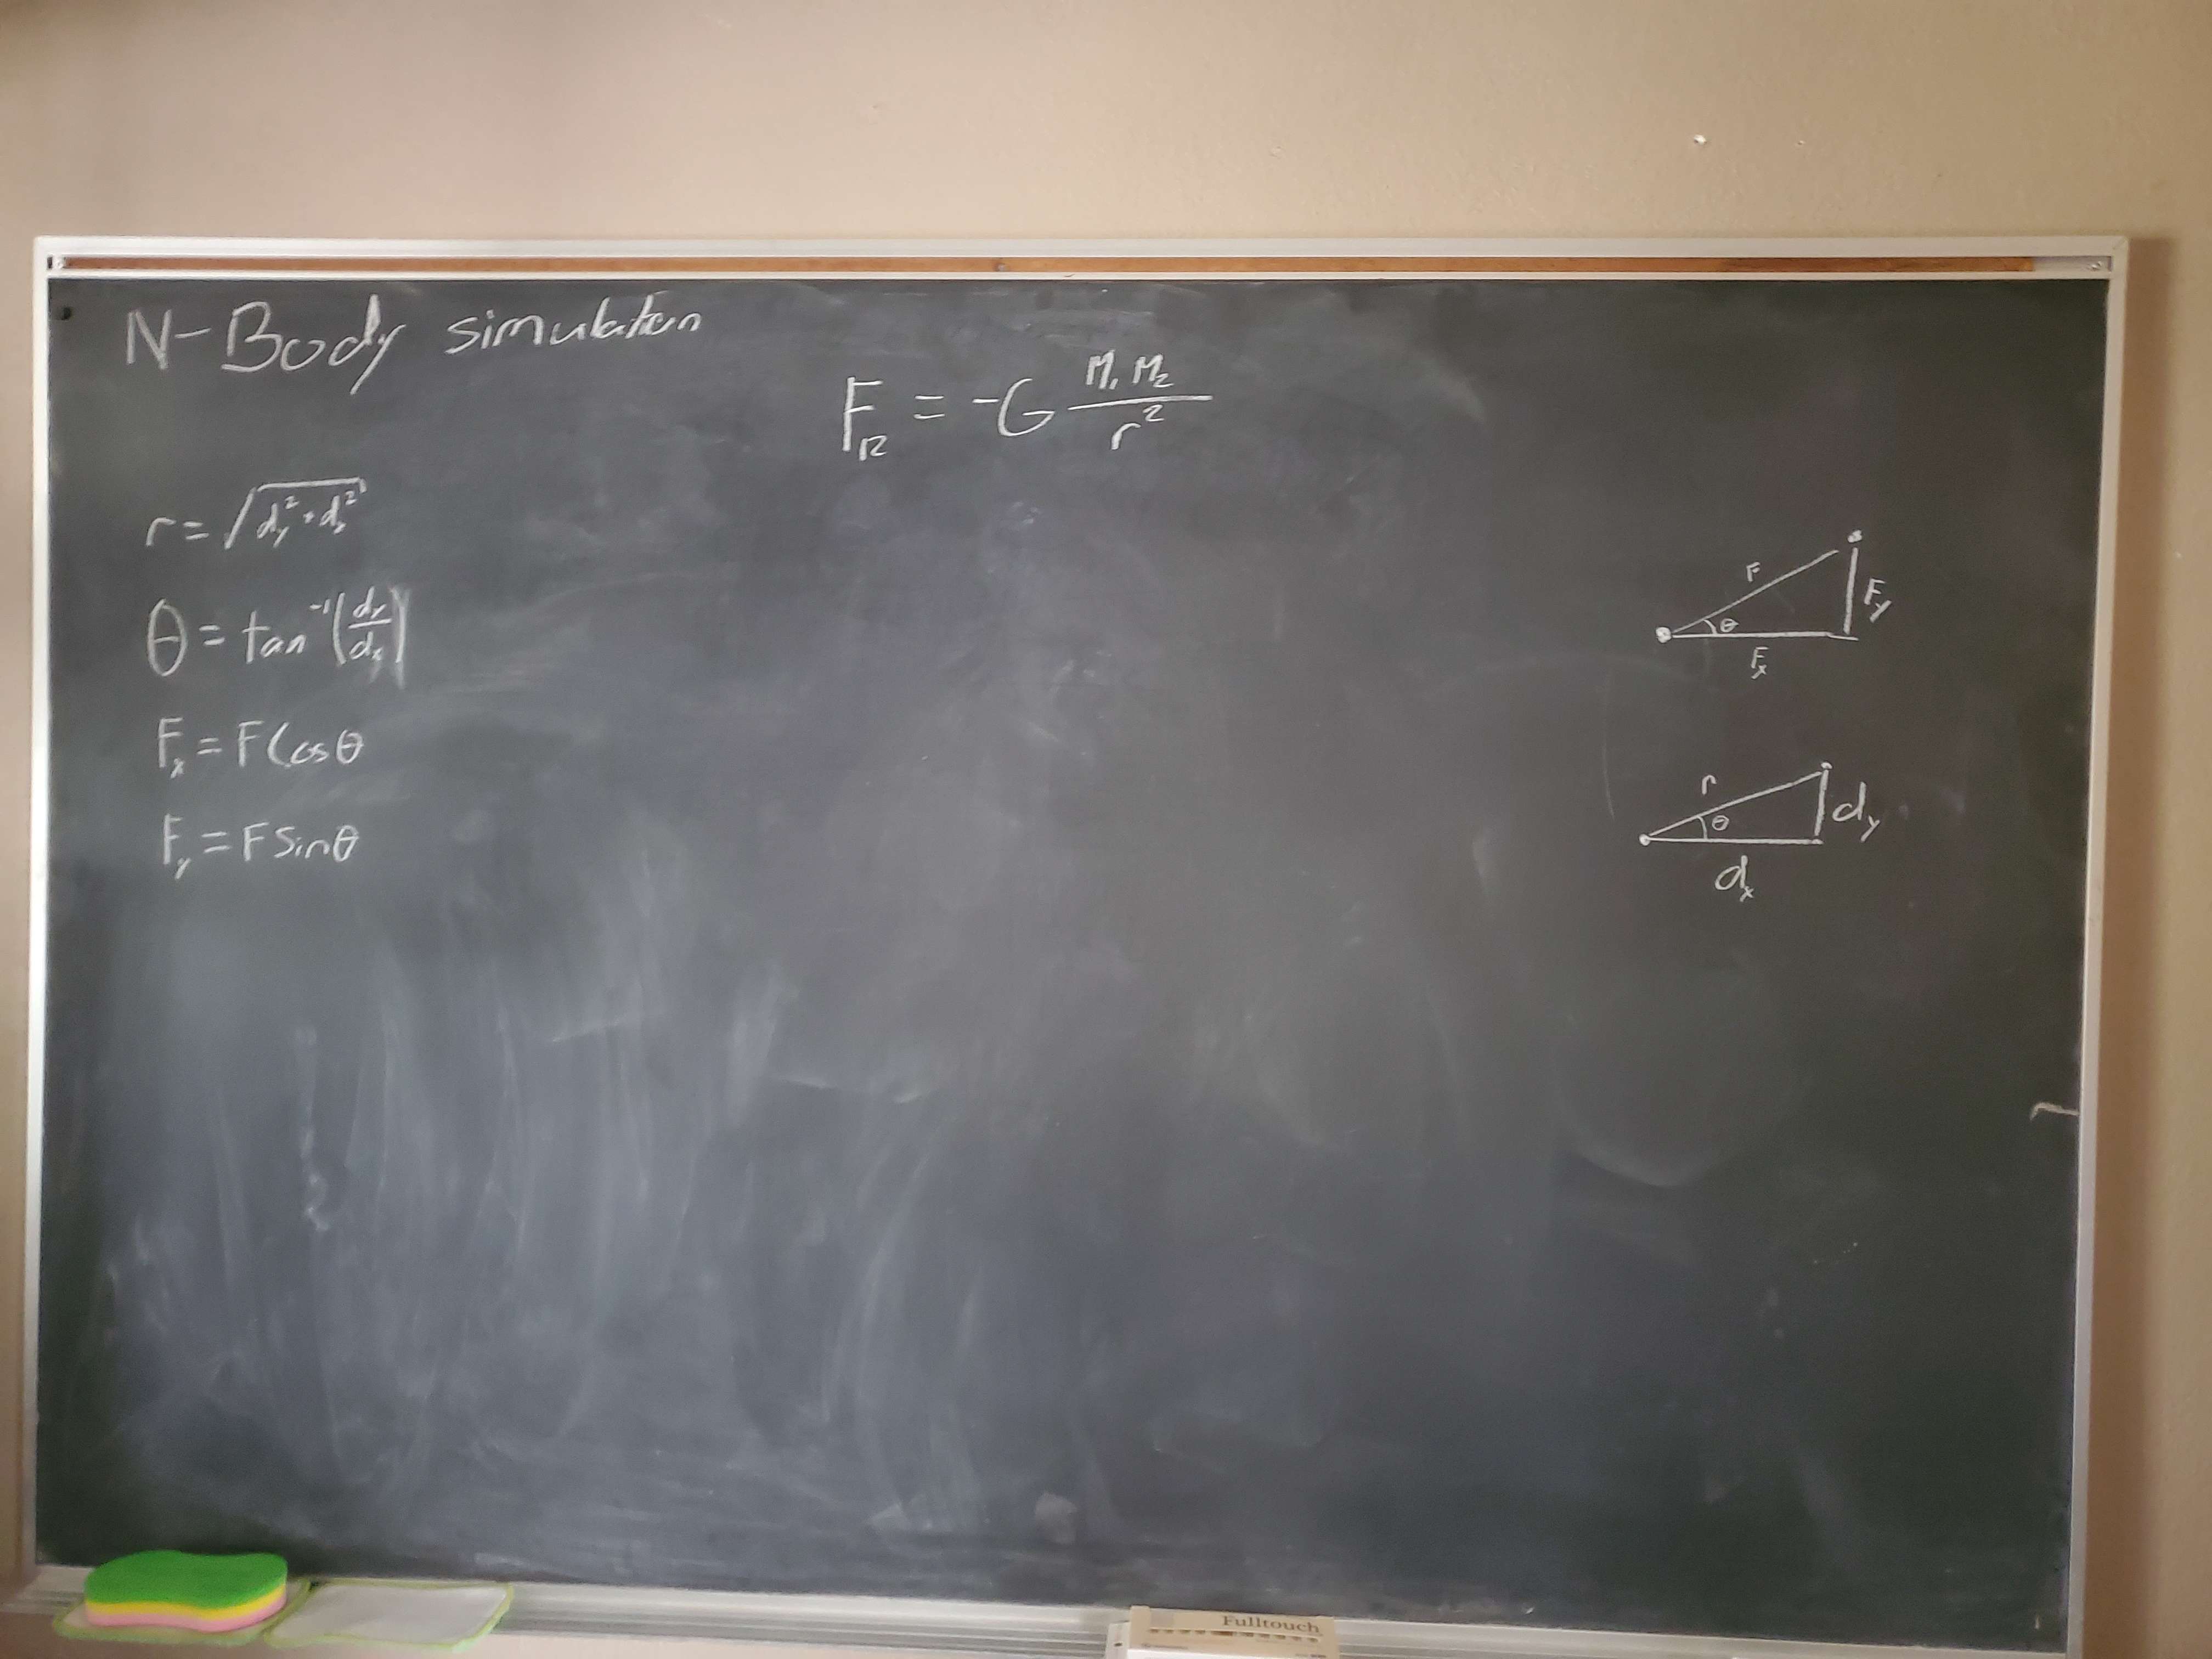 N-Body simulation
F₁₂ = -G M₁ M₂ / r²
r = √(d_y² + d_x²)
θ = tan⁻¹(d_y / d_x)
F_x = F Cos θ
F_y = F Sin θ
F
θ
F_y
F_x
r
θ
d_y
d_x
Fulltouch